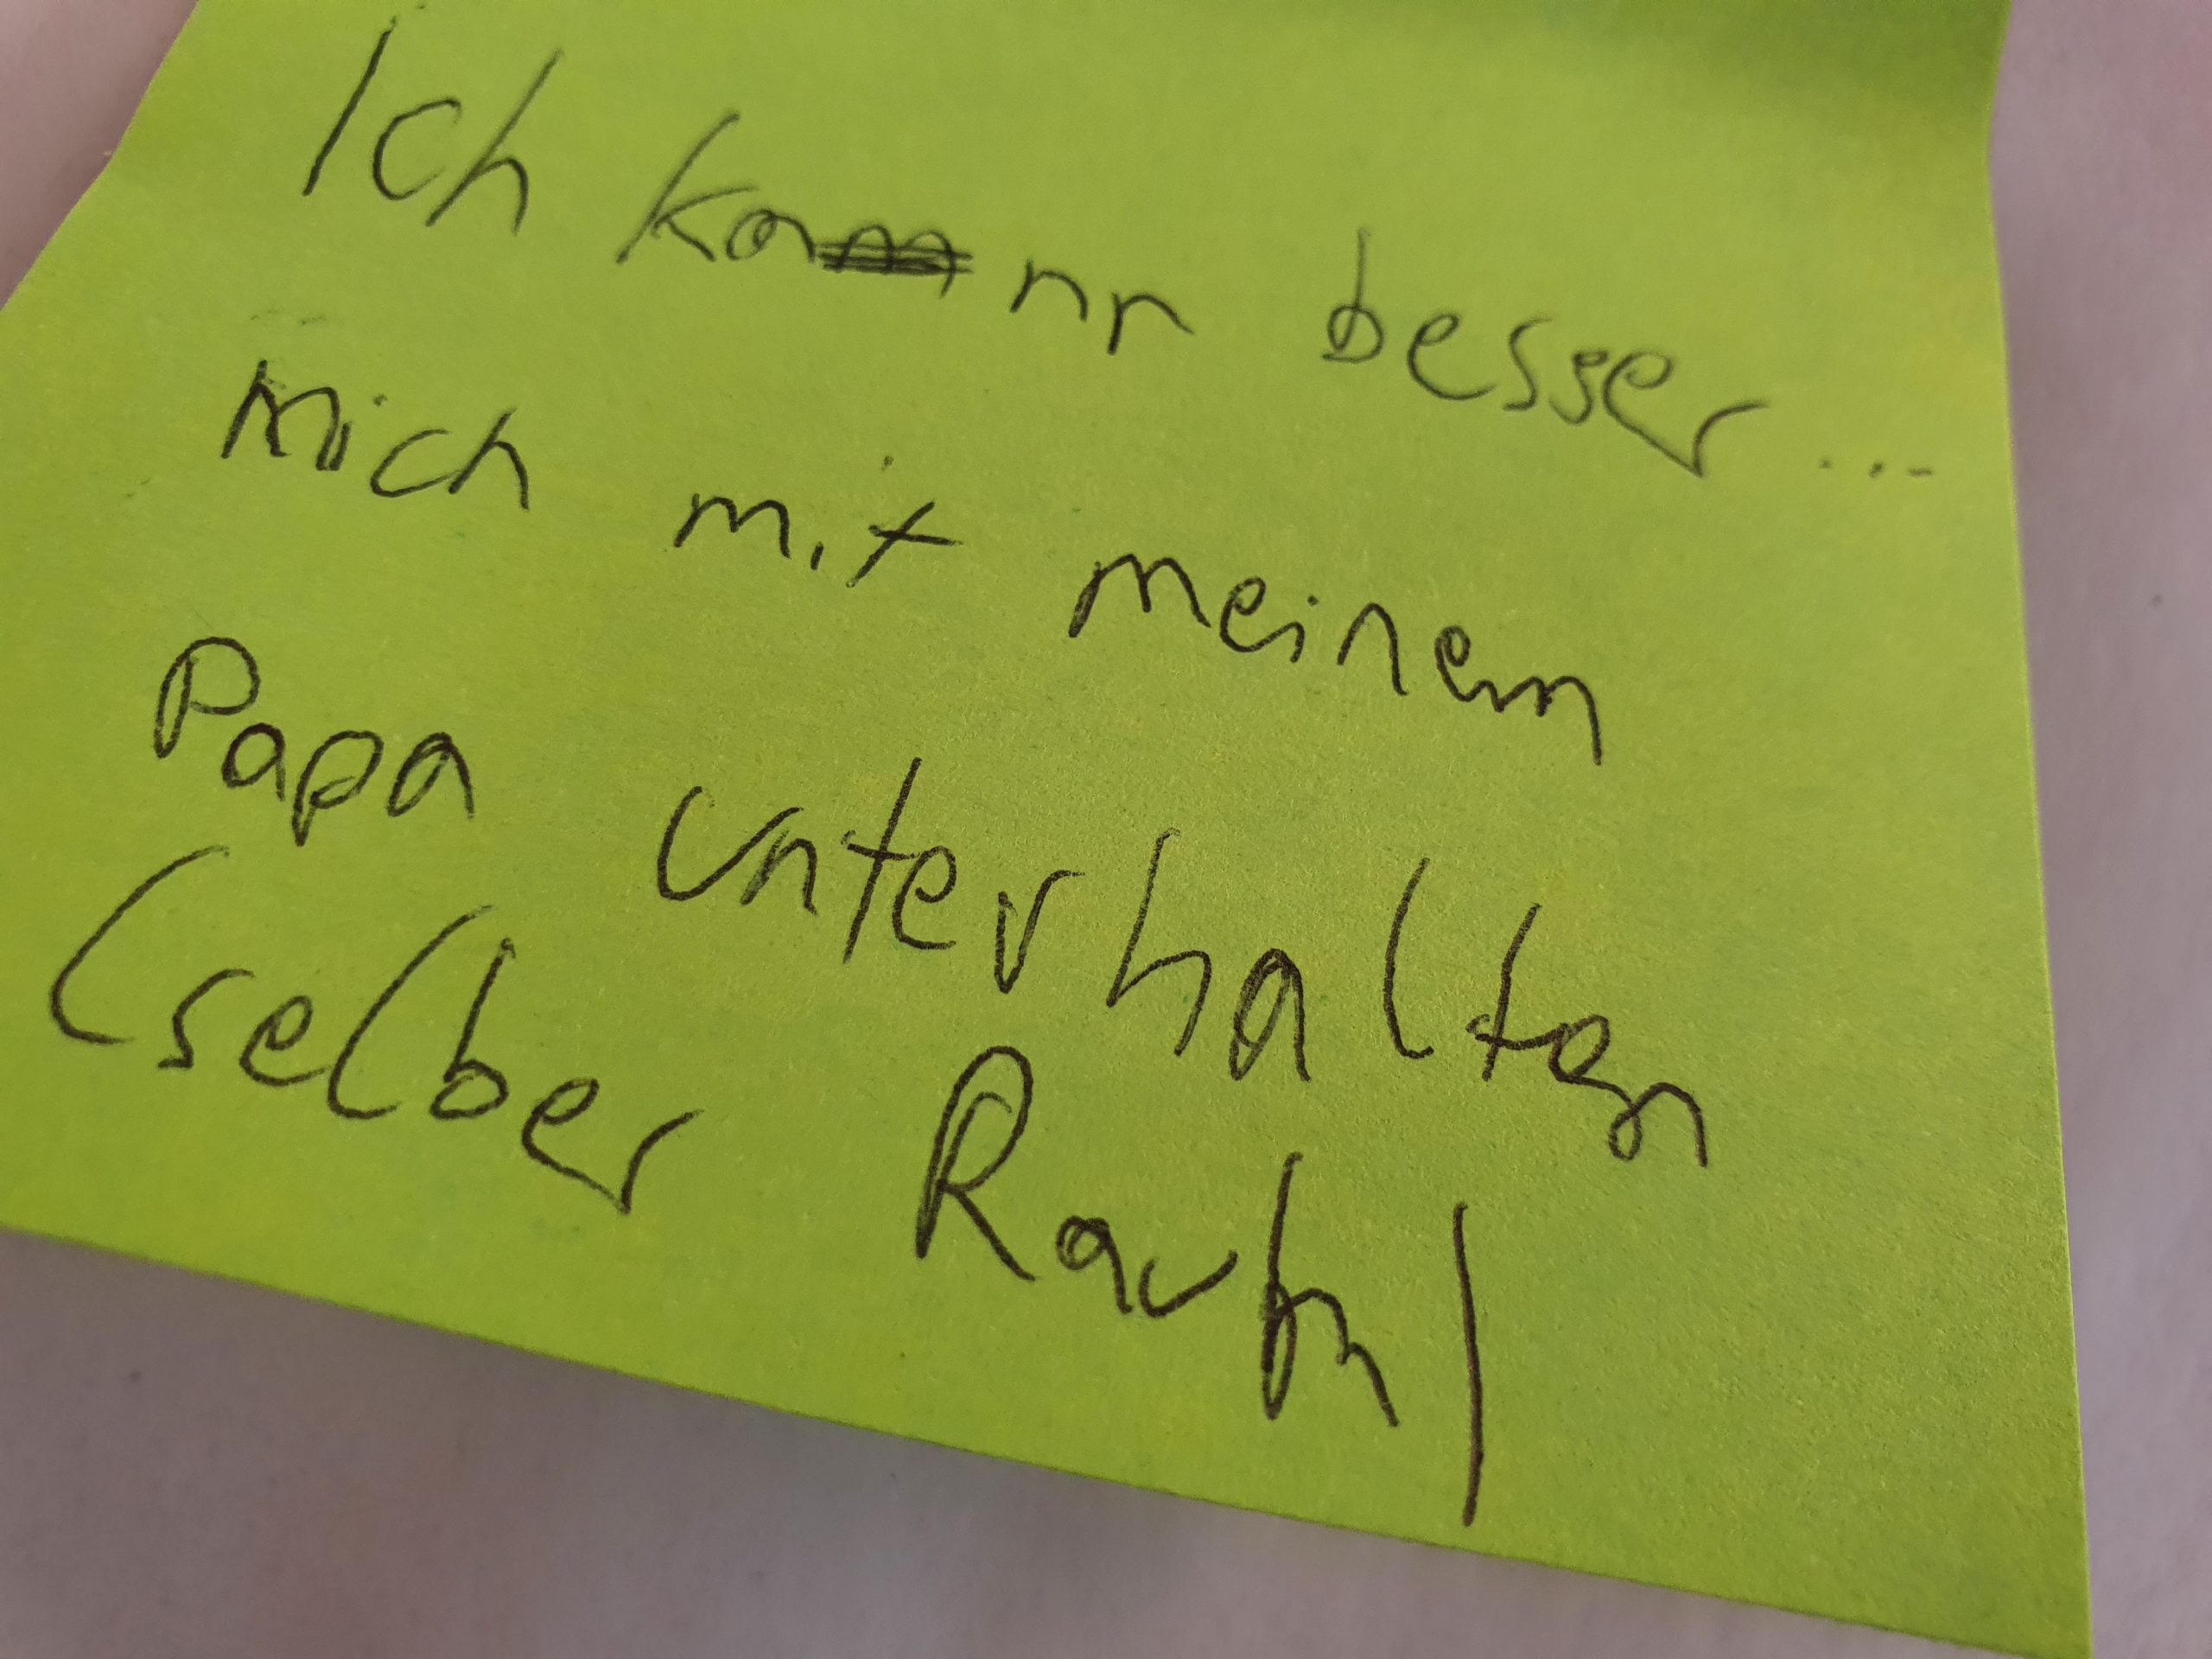 Ich kann besser...
mich mit meinem
Papa unterhalten
(selber Raum)